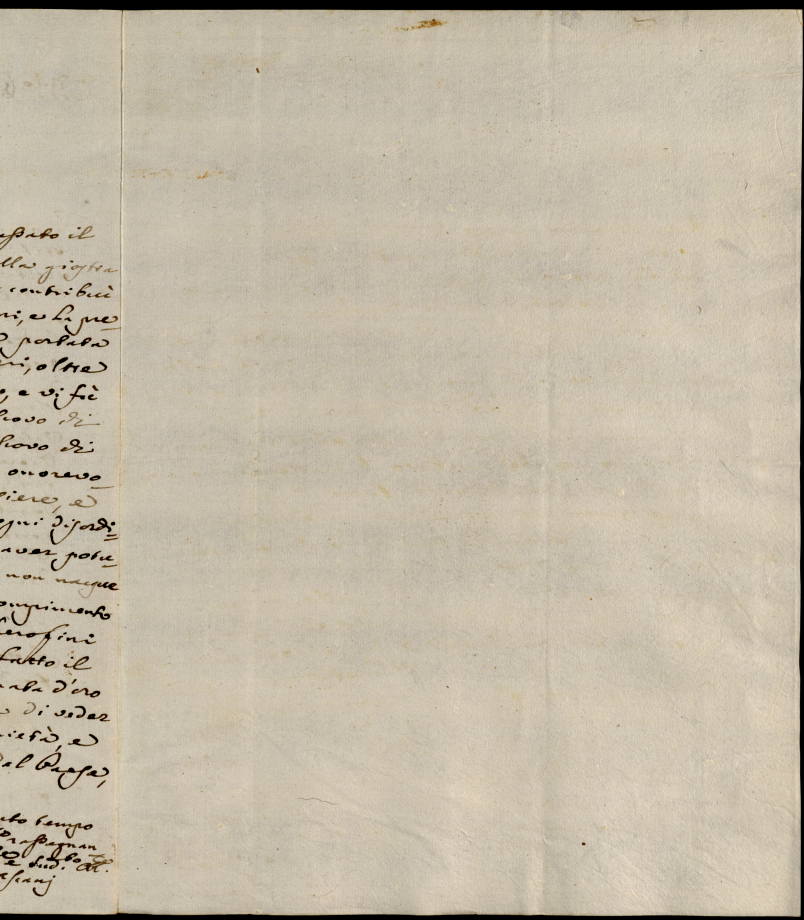 assato il
lla giostra
contribuì
ri, e la pre
portata
ni, oltre
, e vi fù
trovo di
trovo di
onorevo
liere, e
ogni disordi-
aver potu-
non nacque
ompimento
erosini
fatto il
nata d'oro
di veder
ietà, e
dal Paese,
ato tempo
rassegnan